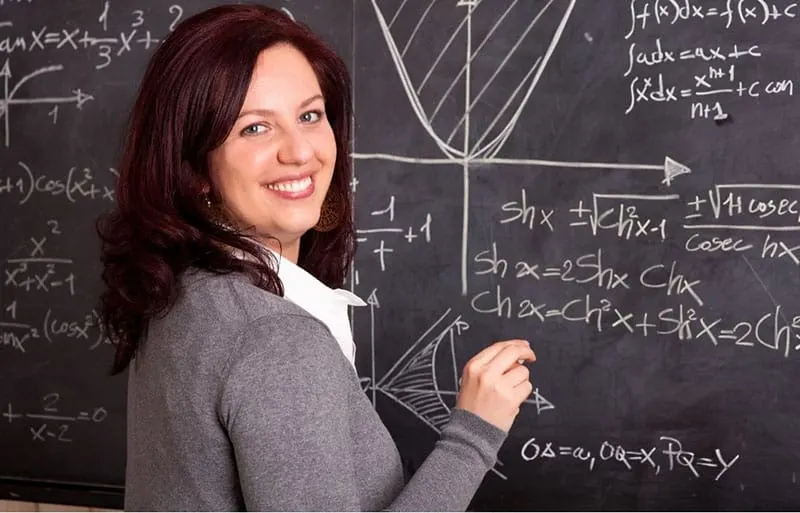 anx=x+1/3x³+
1
+1)cos(x²+x
x²/x³+x²-1
(cosx
+ 2/x-2 =0
-1/+ +1
∫f(x)dx=f(x)+c
∫adx=ax+c
∫xˣdx=xⁿ⁺¹/n+1+c con
shx ±√ch²x-1 ±√1+cosec
cosec hx
sh2x=2Shx Chx
Ch2x=Ch²x+Sh²x=2Ch²
OA=a, OQ=x, PQ=y